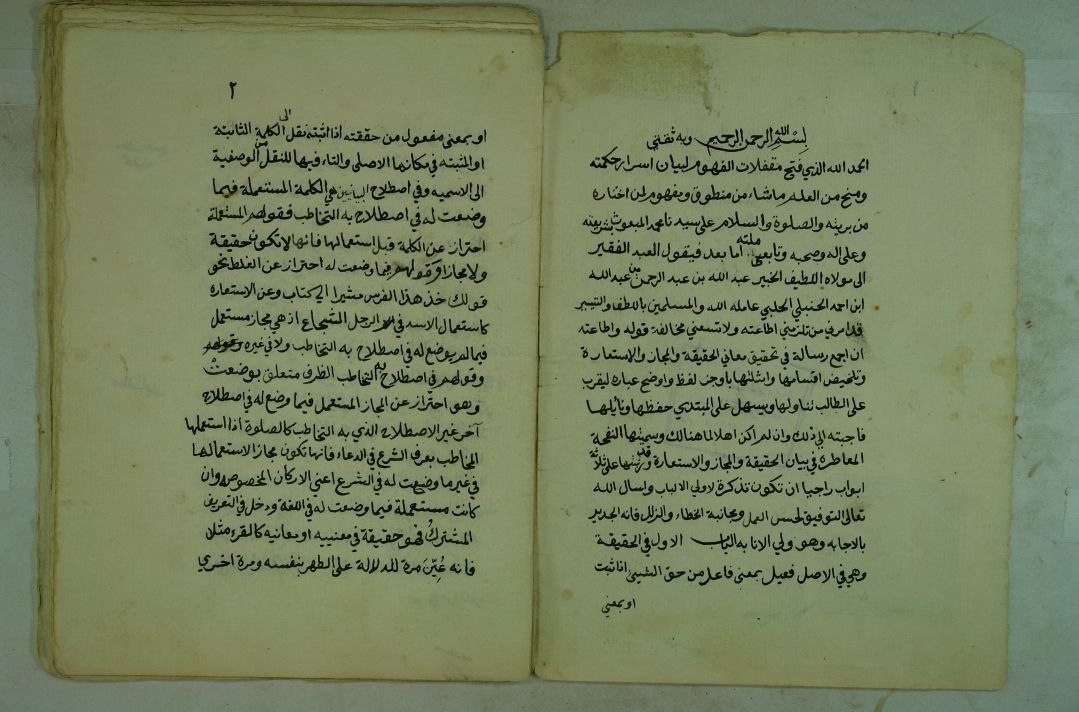 بسم الله الرحمن الرحيم وبه ثقتي
الحمد لله الذي فتح مقفلات الفهوم لبيان اسرار حكمته
ومنح من العلم ما شاء من منطوق ومفهوم لمن اختاره
من بريته والصلوة والسلام على سيدنا محمد المبعوث بشريعته
وعلى اله وصحبه وتابعي ملته اما بعد فيقول العبد الفقير
الى مولاه اللطيف الخبير عبد الله بن عبد الرحمن بن عبد الله
ابن احمد الحنبلي الحلبي عامله الله والمسلمين باللطف والتيسير
قد امرني من تلزمني اطاعته ولا تسعني مخالفة قوله واطاعته
ان اجمع رسالة في تحقيق معاني الحقيقة والمجاز والاستعارة
وتلخيص اقسامها وامثلتها باوجز لفظ واوضح عباره ليقرب
على الطالب تناولها ويسهل على المبتدي حفظها
فاجبته الى ذلك وان لم اكن اهلا لما هنالك وسميتها النفحة
المعاطره في بيان الحقيقة والمجاز والاستعارة وقد رتبتها على ثلاثة
ابواب راجيا ان تكون تذكرة لاولي الالباب واسال الله
تعالى التوفيق لحسن العمل ومجانبة الخطاء والزلل فانه الجدير
بالاجابه وهو ولي الانابه الباب الاول في الحقيقة
وهي في الاصل فعيل بمعنى فاعل من حق الشيئ اذا ثبت
او بمعني
٢
او بمعنى مفعول من حققته اذا اثبته نقل الى الكلمة الثابتة
او المثبته في مكانها الاصلي والتاء فيها للنقل من الوصفية
الى الاسميه وفي اصطلاح البيانيين هي الكلمة المستعملة فيما
وضعت له في اصطلاح به التخاطب فقولهم المستعملة
احتراز عن الكلمة قبل استعمالها فانها لا تكون حقيقة
ولا مجازا وقولهم فيما وضعت له احتراز عن الغلط نحو
قولك خذ هذا الفرس مشيرا الى كتاب وعن الاستعاره
كاستعمال الاسد في الرجل الشجاع اذ هي مجاز مستعمل
فيما لم يوضع له في اصطلاح به التخاطب ولا في غيره
وقولهم في اصطلاح به التخاطب الظرف متعلق بوضعت
وهو احتراز عن المجاز المستعمل فيما وضع له في اصطلاح
آخر غير الاصطلاح الذي به التخاطب كالصلوة اذا استعملها
المخاطب بعرف الشرع في الدعاء فانها تكون مجاز الاستعمالها
في غير ما وضعت له في الشرع اعني الاركان المخصوصه وان
كانت مستعملة فيما وضعت له في اللغة ودخل في التعريف
المشترك فهو حقيقة في معنييه او معانيه كالقرء مثلا
فانه عُيّن مرة للدلالة على الطهر بنفسه ومرة اخري